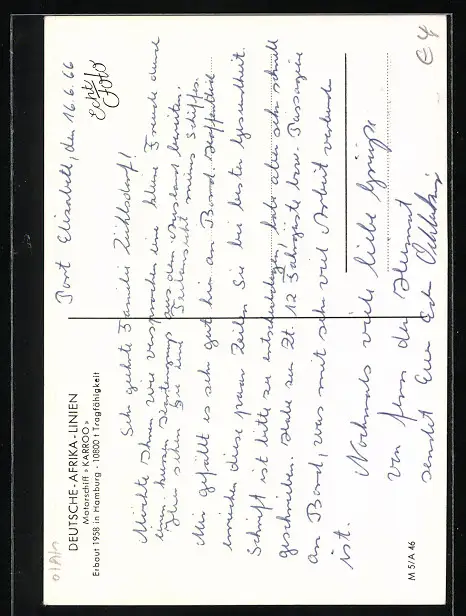 DEUTSCHE-AFRIKA-LINIEN
Motorschiff »KARROO«
Erbaut 1958 in Hamburg - 10800 t Tragfähigkeit
Port Elizabeth, den 16.6.66
Echt Foto
Sehr geehrte Familie
Möchte Ihnen wie versprochen eine kleine Freude durch
einen kurzen Kartengruß aus dem Ausland bereiten.
Hier sehen Sie die Seitensicht meines Schiffes.
Mir gefällt es sehr gut hier an Bord. Hoffentlich
erreichen diese paar Zeilen Sie bei bester Gesundheit.
Schrift ist bitte zu entschuldigen, habe aber sehr schnell
geschrieben. Habe zur Zt. 12 Fahrgäste bzw. Passagiere
an Bord, was mit sehr viel Arbeit verbunden
ist.
Nochmals viele liebe Grüße
von fern der Heimat
sendet Euer
M 5/A 46